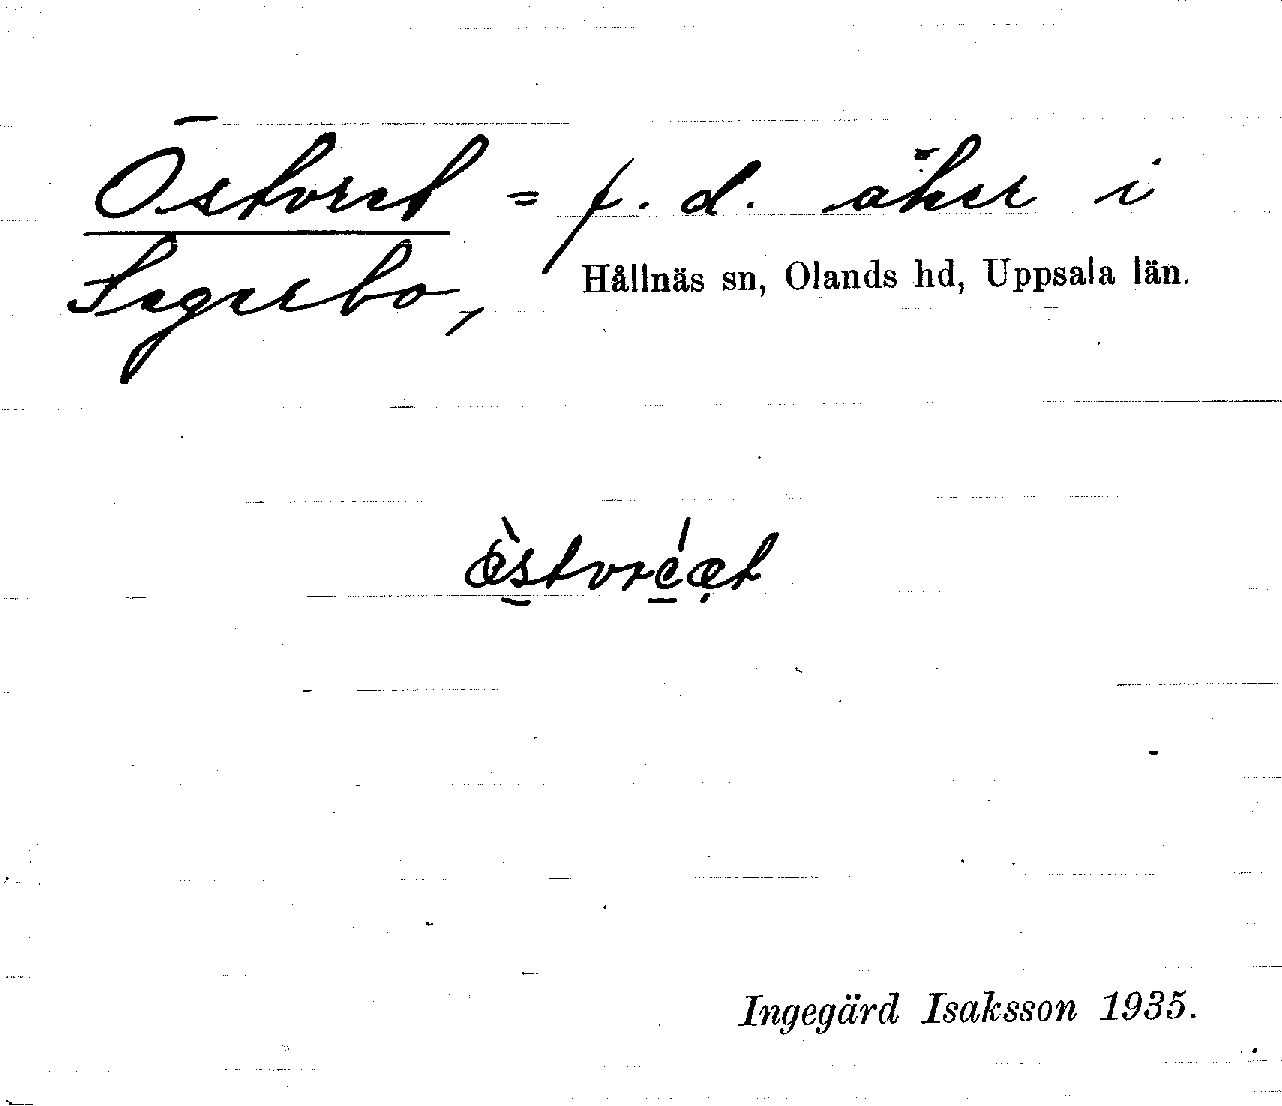 Östvret = f.d. åker i
Segerbo, Hållnäs sn, Olands hd, Uppsala län.
Ingegärd Isaksson 1935.